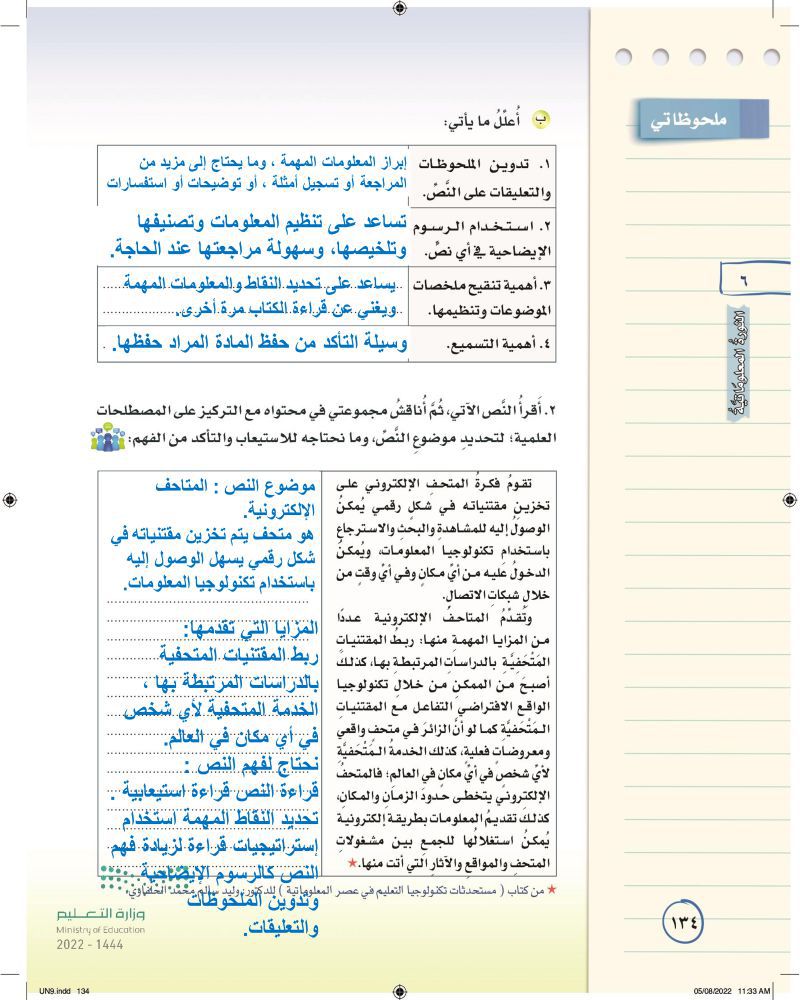 ملحوظاتي
ب أُعلِّلُ ما يأتي:
١. تدوين الملحوظات
والتعليقات على النَّصِّ.
إبراز المعلومات المهمة ، وما يحتاج إلى مزيد من
المراجعة أو تسجيل أمثلة ، أو توضيحات أو استفسارات
٢. استخدام الرسوم
الإيضاحية في أي نصِّ.
تساعد على تنظيم المعلومات وتصنيفها
وتلخيصها، وسهولة مراجعتها عند الحاجة.
٣. أهمية تنقيح ملخصات
الموضوعات وتنظيمها.
يساعد على تحديد النقاط والمعلومات المهمة
ويغني عن قراءة الكتاب مرة أخرى.
٤. أهمية التسميع.
وسيلة التأكد من حفظ المادة المراد حفظها.
٦
الثورةُ المعلوماتيَّةُ
٢. أَقرأُ النَّص الآتي، ثُمَّ أُناقشُ مجموعتي في محتواه مع التركيز على المصطلحات
العلمية؛ لتحديدِ موضوعِ النَّصِّ، وما نحتاجه للاستيعاب والتأكد من الفهم:
تقومُ فكرةُ المتحفِ الإلكتروني على
تخزينِ مقتنياته في شكلٍ رقمي يُمكنُ
الوصولُ إليه للمشاهدةِ والبحثِ والاسترجاعِ
باستخدامِ تكنولوجيا المعلومات، ويُمكنُ
الدخولُ عليه من أيِّ مكانٍ وفي أيِّ وقتٍ من
خلالِ شبكاتِ الاتصالِ.
وتُقدِّمُ المتاحفُ الإلكترونية عددًا
من المزايا المهمة منها: ربطُ المقتنياتِ
المَتْحَفيَّةِ بالدراساتِ المرتبطةِ بها، كذلكَ
أصبحَ من الممكنِ من خلالِ تكنولوجيا
الواقعِ الافتراضي التفاعل مع المقتنياتِ
المَتْحَفيَّةِ كما لو أنَّ الزائرَ في متحفٍ واقعي
ومعروضاتٍ فعليةٍ، كذلك الخدمةُ المَتْحَفيَّةُ
لأيِّ شخصٍ في أيِّ مكانٍ في العالمِ؛ فالمتحفُ
الإلكتروني يتخطى حدودَ الزمانِ والمكانِ،
كذلكَ تقديمُ المعلوماتِ بطريقةٍ إلكترونيةٍ
يُمكنُ استغلالُها للجمعِ بين مشغولاتِ
المتحفِ والمواقعِ والآثارِ التي أتت منها.★
موضوع النص : المتاحف
الإلكترونية.
هو متحف يتم تخزين مقتنياته في
شكل رقمي يسهل الوصول إليه
باستخدام تكنولوجيا المعلومات.
المزايا التي تقدمها:
ربط المقتنيات المتحفية
بالدراسات المرتبطة بها ،
الخدمة المتحفية لأي شخص
في أي مكان في العالم.
نحتاج لفهم النص :
قراءة النص قراءة استيعابية :
تحديد النقاط المهمة استخدام
إستراتيجيات قراءة لزيادة فهم
النص كالرسوم الإيضاحية
وتدوين الملحوظات
والتعليقات.
★ من كتاب ( مستحدثات تكنولوجيا التعليم في عصر المعلوماتية ) للدكتور: وليد سالم محمد الحلفاوي.
وزارة التعليم
Ministry of Education
2022 - 1444
١٣٤
UN9.indd 134
05/08/2022 11:33 AM